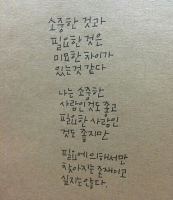 소중한 것과
필요한 것은
미묘한 차이가
있는것 같다
나는 소중한
사람인것도 좋고
필요한 사람인
것도 좋지만
필요에 의해서만
찾아지는 존재이고
싶지는않다.